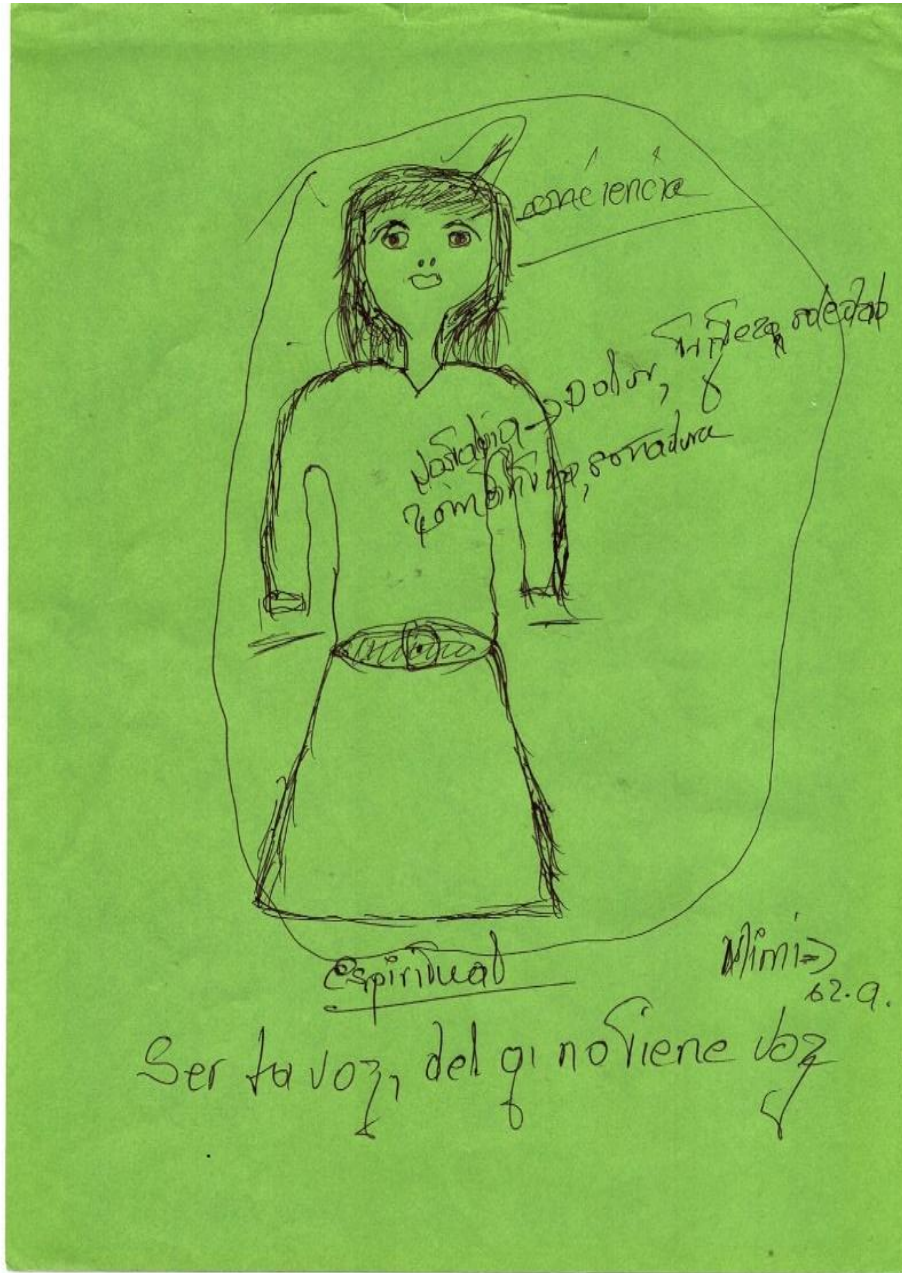 conciencia
Nostalgia → Dolor, tristeza, soledad
romántica, soñadora
Espiritual
Mimi ⇒
62.a.
Ser la voz, del q' no tiene voz